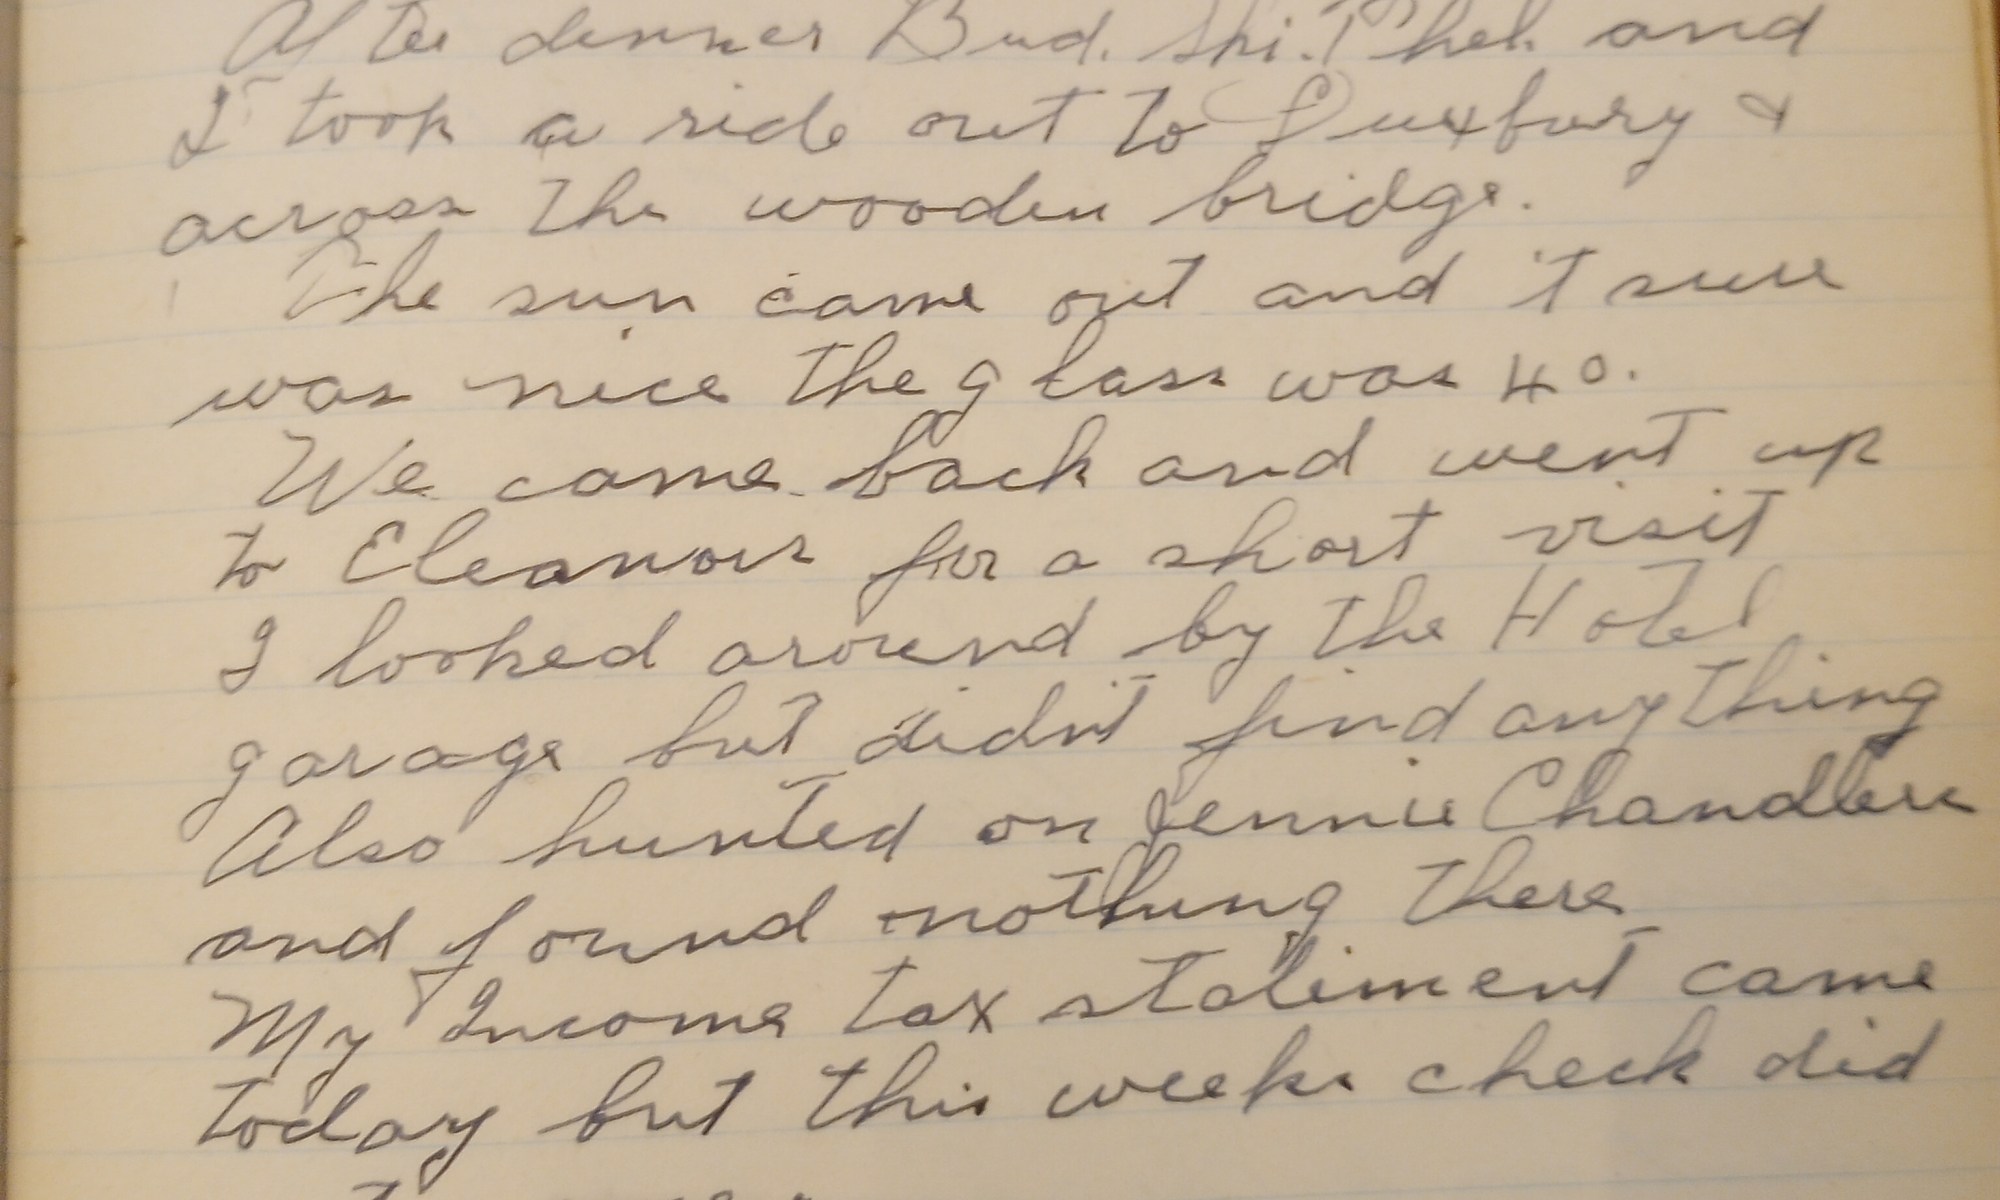 After dinner Bud. Shi. Phel. and
I took a ride out to Duxbury &
across the wooden bridge.
The sun came out and it sure
was nice the glass was 40.
We came back and went up
to Eleanors for a short visit
I looked around by the Hotel
garage but didn't find anything
Also hunted on Jennie Chandlers
and found nothing there
My Income tax statiment came
today but this weeks check did